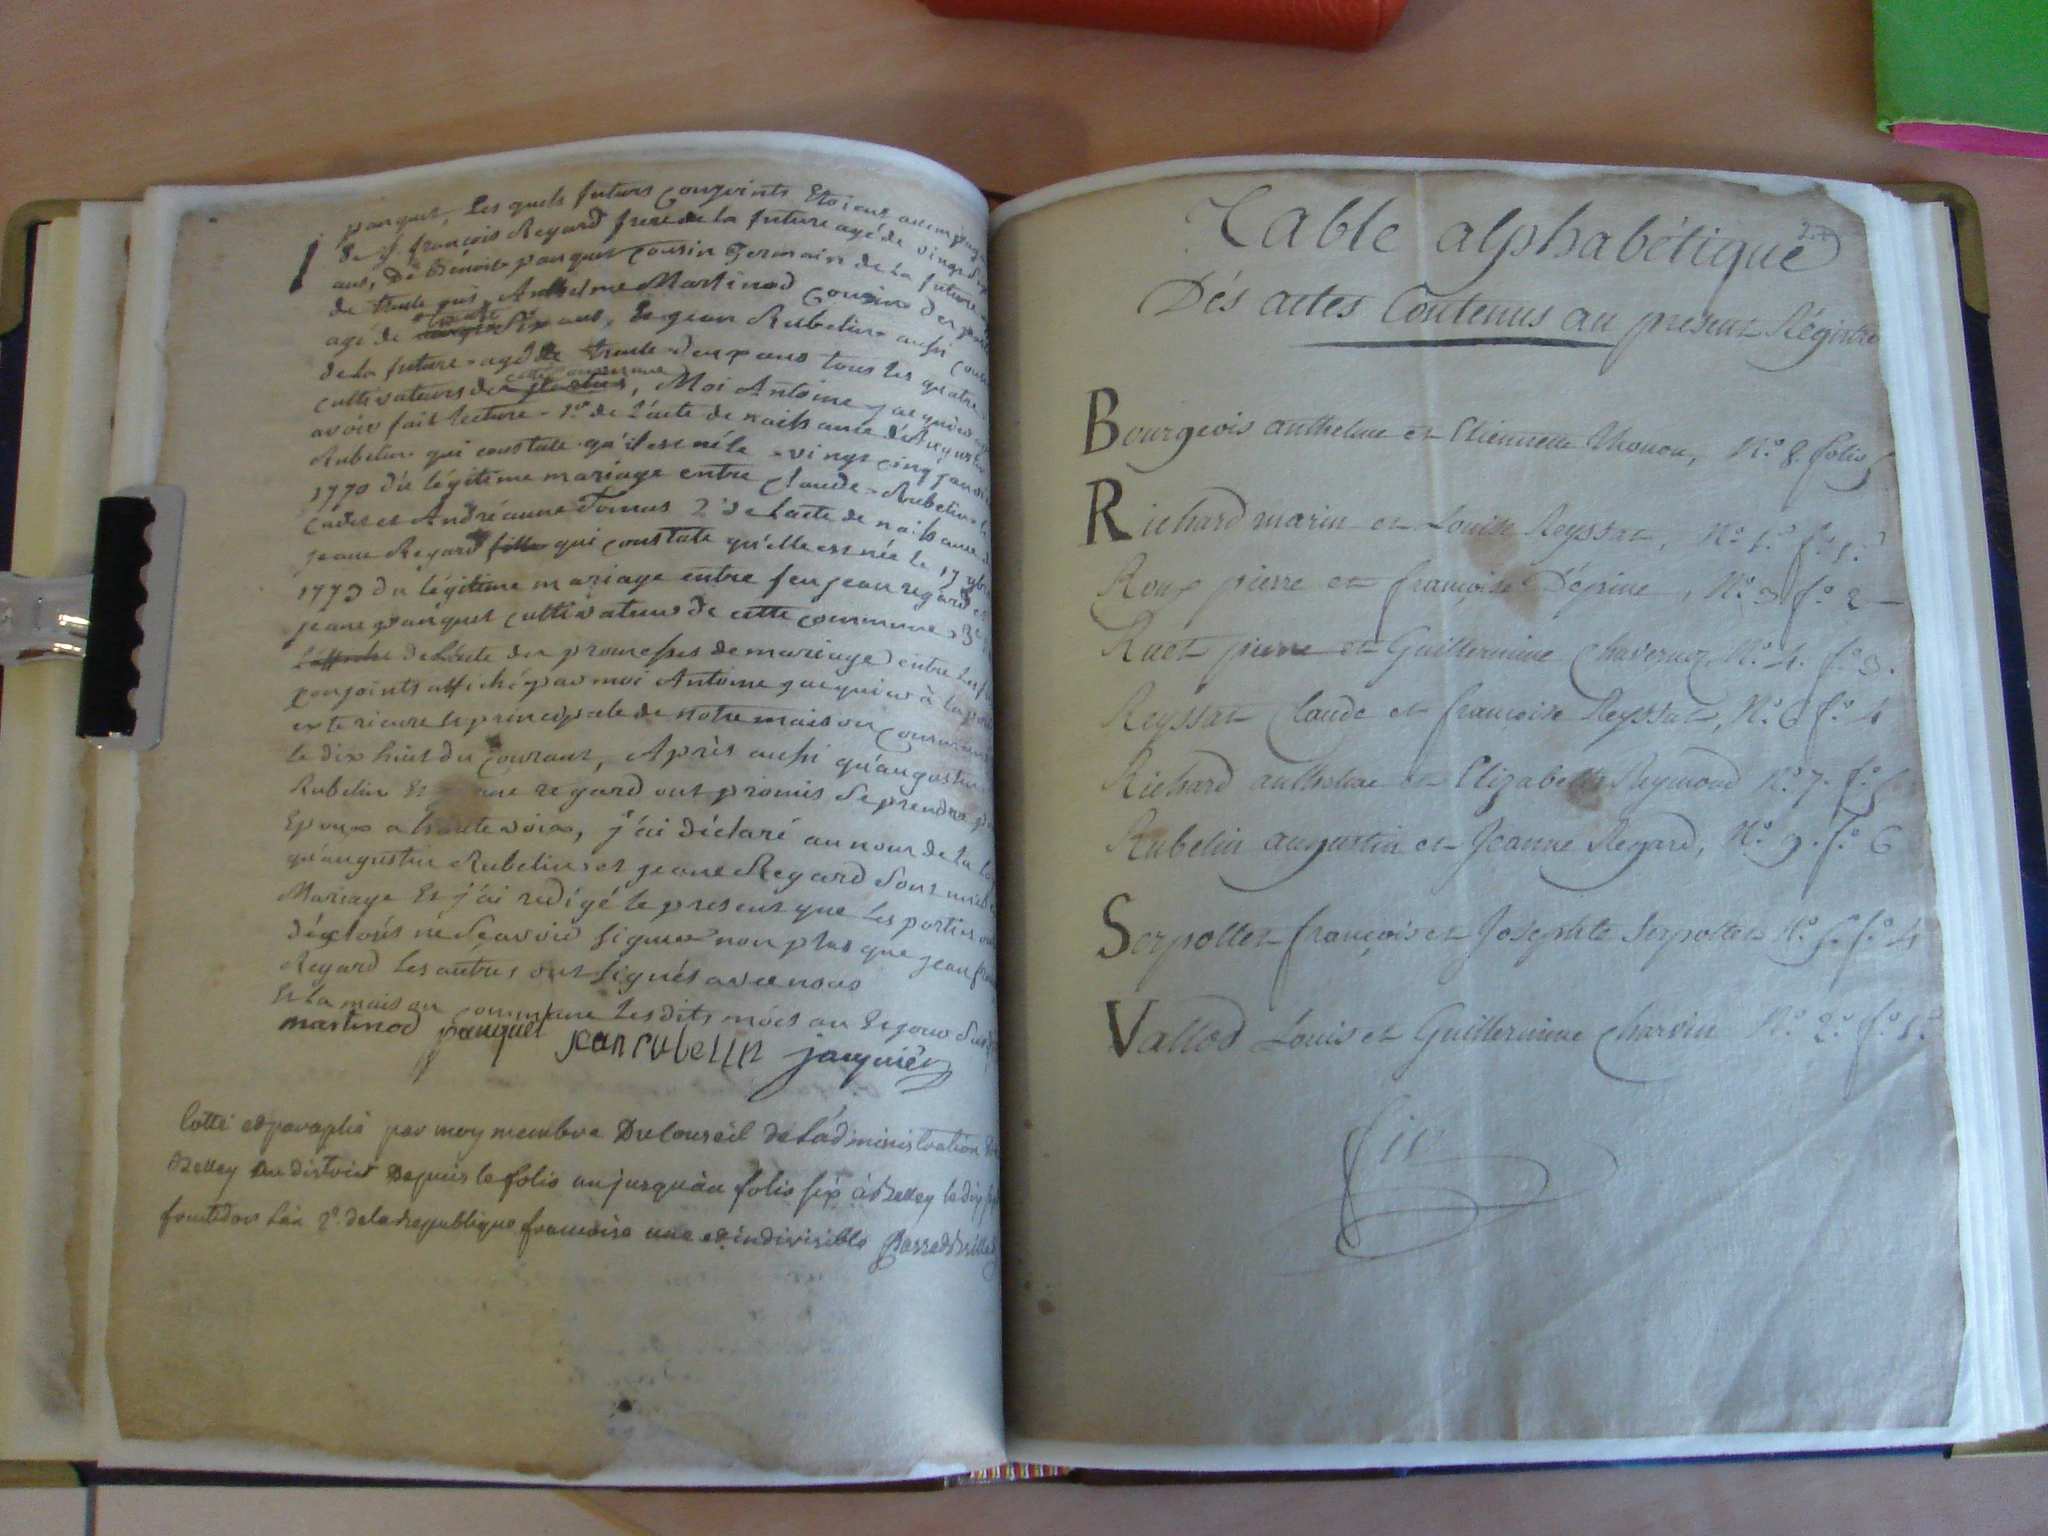 panquet, Les quels futurs conjoints Etoient accompagn
de J. françois Regard frere de la future agé de vingt
ans, De Benoit panquet Cousin Germain de La future
de trente Anthelme Martinod Cousin
agé de trente Six ans, & jean Rubelin aussi Cous
de la future agé de trente deux ans tous Les quatre
Cultivateurs de cette commune, Moi Antoine jacquier
avoir fait Lecture 1.º de L'acte de naissance d'Augustin
Rubelin qui constate qu'il est né le vingt cinq janvie
1770 du légitime mariage entre Claude Rubelin
cadet et Andréanne 2.º de Lacte de naissance d
jeane Regard fille qui constate qu'elle est née le 17
1773 du légitime mariage entre feu jean regard et
jeane panquet cultivateurs de cette commune, 3º
de Lacte des promesses de mariage entre Les f
conjoints affiché par moi Antoine jacquier à la por
exterieure & principale de notre maison Commune
le dix huit du Courant, Après aussi qu'augustin
Rubelin Et regard ont promis de prendre p
Epoux a haute voix, j'ai déclaré au nom de la loi
qu'augustin Rubelin et jeane Regard Sont unis
Mariage Et j'ai redigé le present que Les parties on
déclarés né Scavoir Signer non plus que jean fran
Regard Les autres ont Signés avec nous
En la maison commune Les dits mois an & jour Sus
martinod panquet jean rubelin jacquier
Cotté et paraphé par moy membre Du Conseil de L'administration
Belley Du district Depuis le folio un jusquau folio six à Belley le dix
l'an 2º. de la republique francoise une et indivisible
Table alphabétique
Dés actes Contenus au present Régistre
Bourgeois anthelme et Etiennette Thonon, Nº. 8. folio 5
Richard marin et Louise Reyssat, Nº. 1.º fº. 1.º
Roux pierre et françoise D'épine, Nº. 3 fº. 2
Ruet pierre et Guillermine Chavernoz Nº. 4. fº. 3.
Reyssat Claude et françoise Reyssat, Nº. 6 fº. 4
Richard anthelme et Elizabeth Reymond Nº. 7. fº. 5
Rubelin augustin et Jeanne Regard, Nº. 9. fº. 6
Serpollet françois et Josephte Serpollet Nº. 5. fº. 4
Vallod Louis et Guillermine Charvin Nº. 2.º fº. 1.º
fin